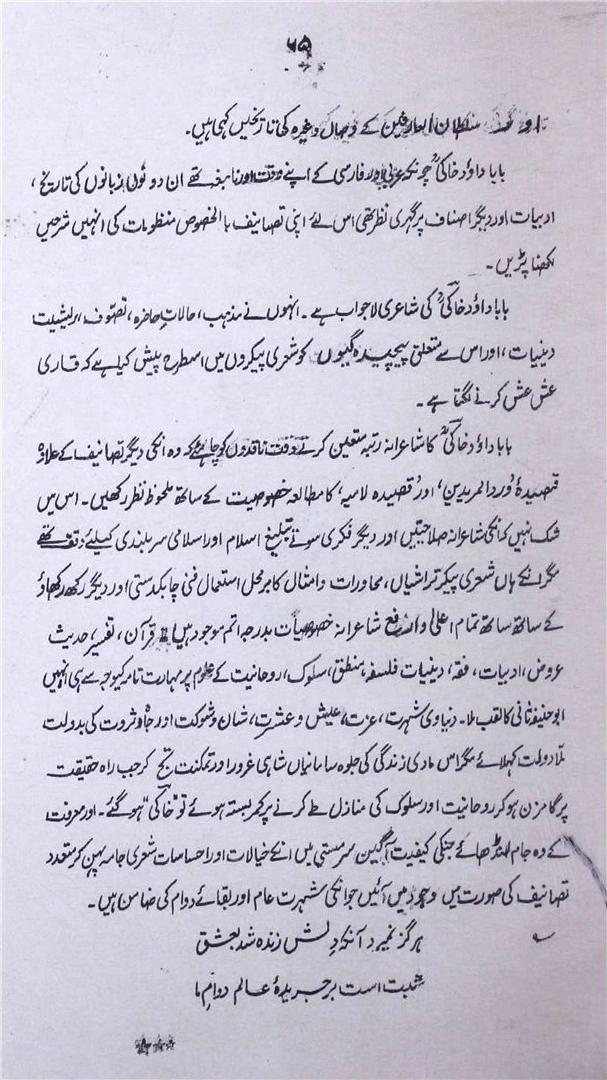 ۶۵
اور سلطان العارفین کے وصال وغیرہ کی تاریخیں کہی ہیں۔
بابا داؤد خاکیؒ چونکہ عربی اور فارسی کے اپنے وقت اور نابغہ تھے ان دونوں زبانوں کی تاریخ،
ادبیات اور دیگر اصناف پر گہری نظر تھی اس لئے اپنی تصانیف بالخصوص منظومات کی انہیں شرحیں
لکھنا پڑیں۔
بابا داؤد خاکیؒ کی شاعری لاجواب ہے۔ انہوں نے مذہب، حالاتِ حاضرہ، تصوّف، ریشیت
دینیات، اور اس سے متعلق پیچیدہ گیوں کو شعری پیکروں میں اسطرح پیش کیا ہے کہ قاری
عش عش کرنے لگتا ہے۔
بابا داؤد خاکیؒ کا شاعرانہ رتبہ متعین کرتے وقت ناقدوں کو چاہئے کہ وہ انکی دیگر تصانیف کے علاوہ
قصیدۂ ’ورد المریدین‘ اور ’قصیدہ لامیہ‘ کا مطالعہ خصوصیت کے ساتھ ملحوظ نظر رکھیں۔ اس میں
شک نہیں کہ انکی شاعرانہ صلاحیتیں اور دیگر فکری سوتے تبلیغ اسلام اور اسلامی سربلندی کیلئے وقف تھے
مگر انکے ہاں شعری پیکر تراشیاں، محاورات و امثال کا برمحل استعمال فنی چابکدستی اور دیگر رکھ رکھاؤ
کے ساتھ ساتھ تمام اعلیٰ وارفع شاعرانہ خصوصیات بدرجہ اتم موجود ہیں۔ قرآن، تفسیر، حدیث
عروض، ادبیات، فقہ، دینیات فلسفہ، منطق، سلوک، روحانیت کے علوم پر مہارت تامہ کیوجہ سے ہی انہیں
ابوحنیفہ ثانی کا لقب ملا۔ دنیاوی شہرت، عزت، عیش و عشرت، شان و شوکت اور جاہ و ثروت کی بدولت
ملّا دولت کہلائے مگر اس مادی زندگی کی جلوہ سامانیاں شاہی غرور اور تمکنت تج کر جب راہ حقیقت
پر گامزن ہو کر روحانیت اور سلوک کی منازل طے کرنے پر کمر بستہ ہوئے تو "خاکی" ہو گئے۔ اور معرفت
کے وہ جام لنڈھائے جنکی کیفیت آگین سرمستی میں انکے خیالات اور احساسات شعری جامہ پہن کر متعدد
تصانیف کی صورت میں وجود میں آئیں جو انکی شہرت عام اور بقائے دوام کی ضامن ہیں۔
ہرگز نمیرد آنکہ دلش زندہ شد بعشق
ثبت است بر جریدۂ عالم دوامِ ما
***